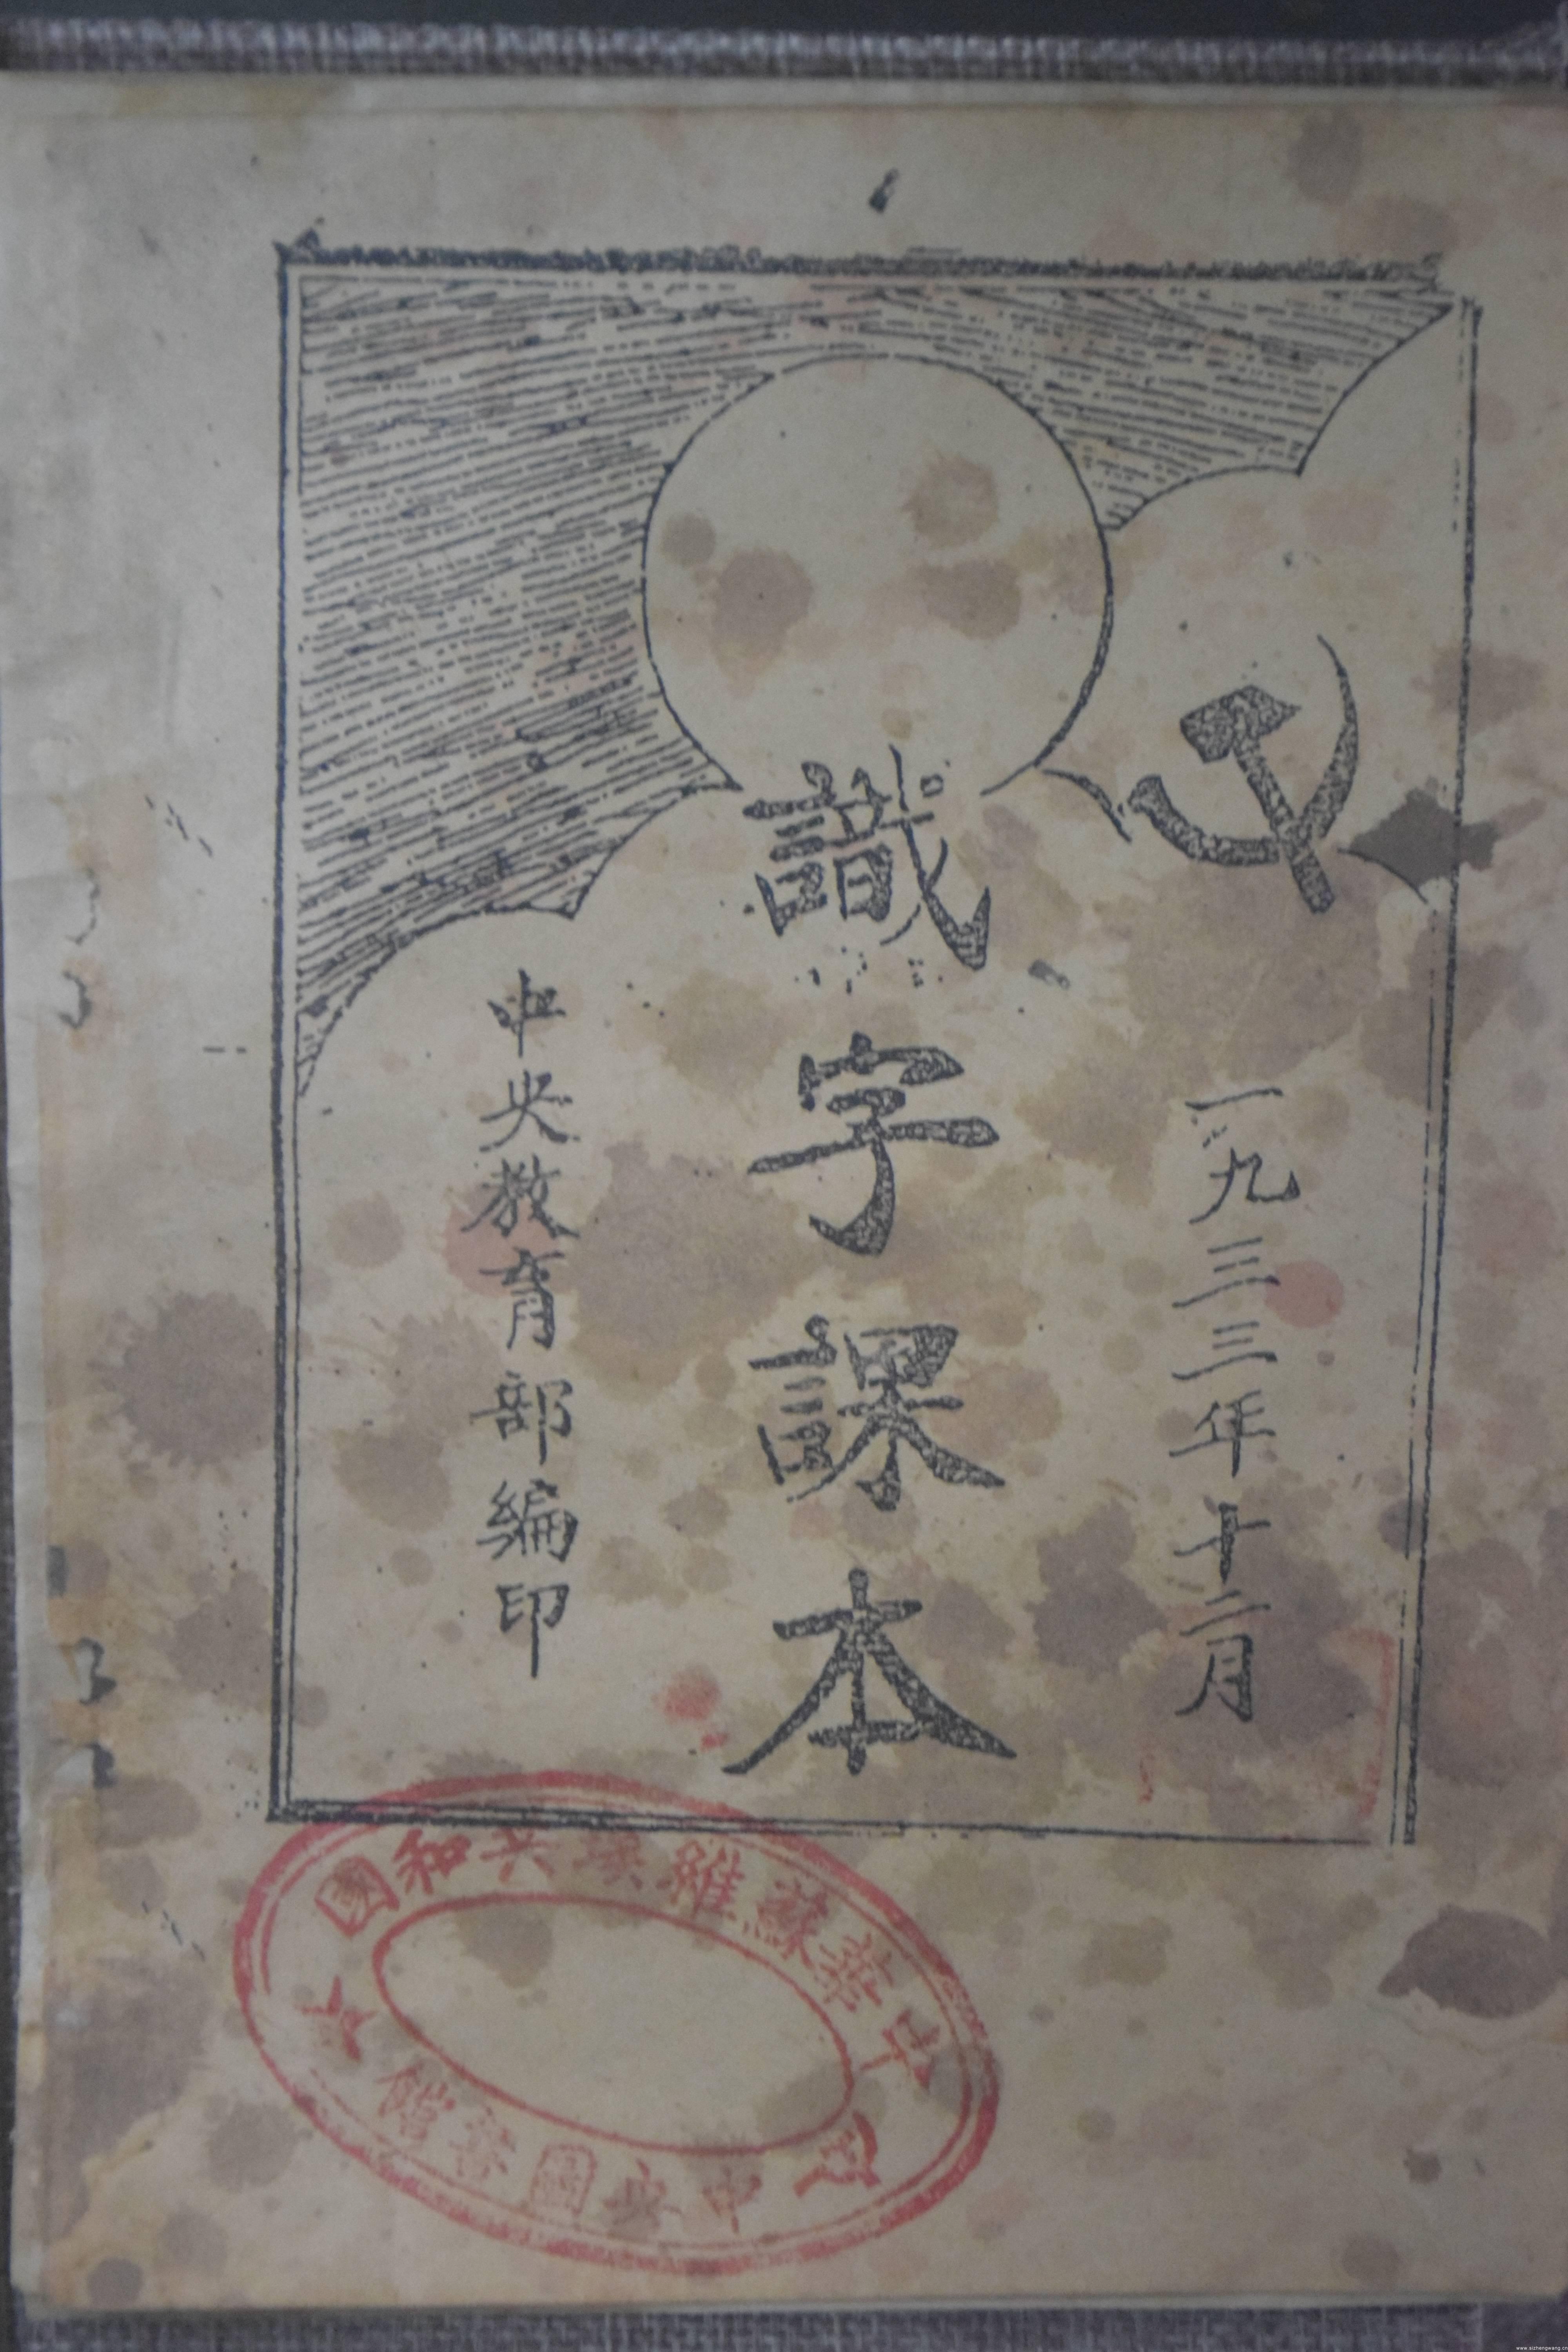 一九三三年十二月
識字課本
中央教育部編印
中華蘇維埃共和國
中央圖書館
www.sizhengwang.cn